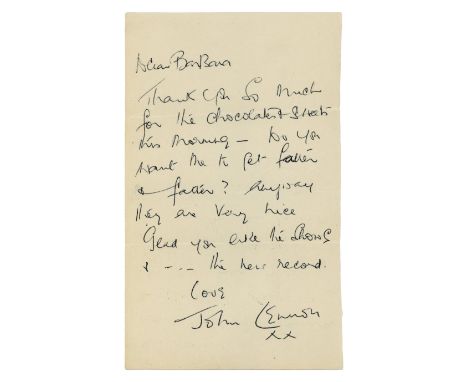 Dear Barbara
Thank you so much
for the chocolates & sweets
this morning — Do you
want me to get fatter
& fatter? Anyway
they are very nice
Glad you like the shows
& --- the new record.
Love
John Lennon
xx